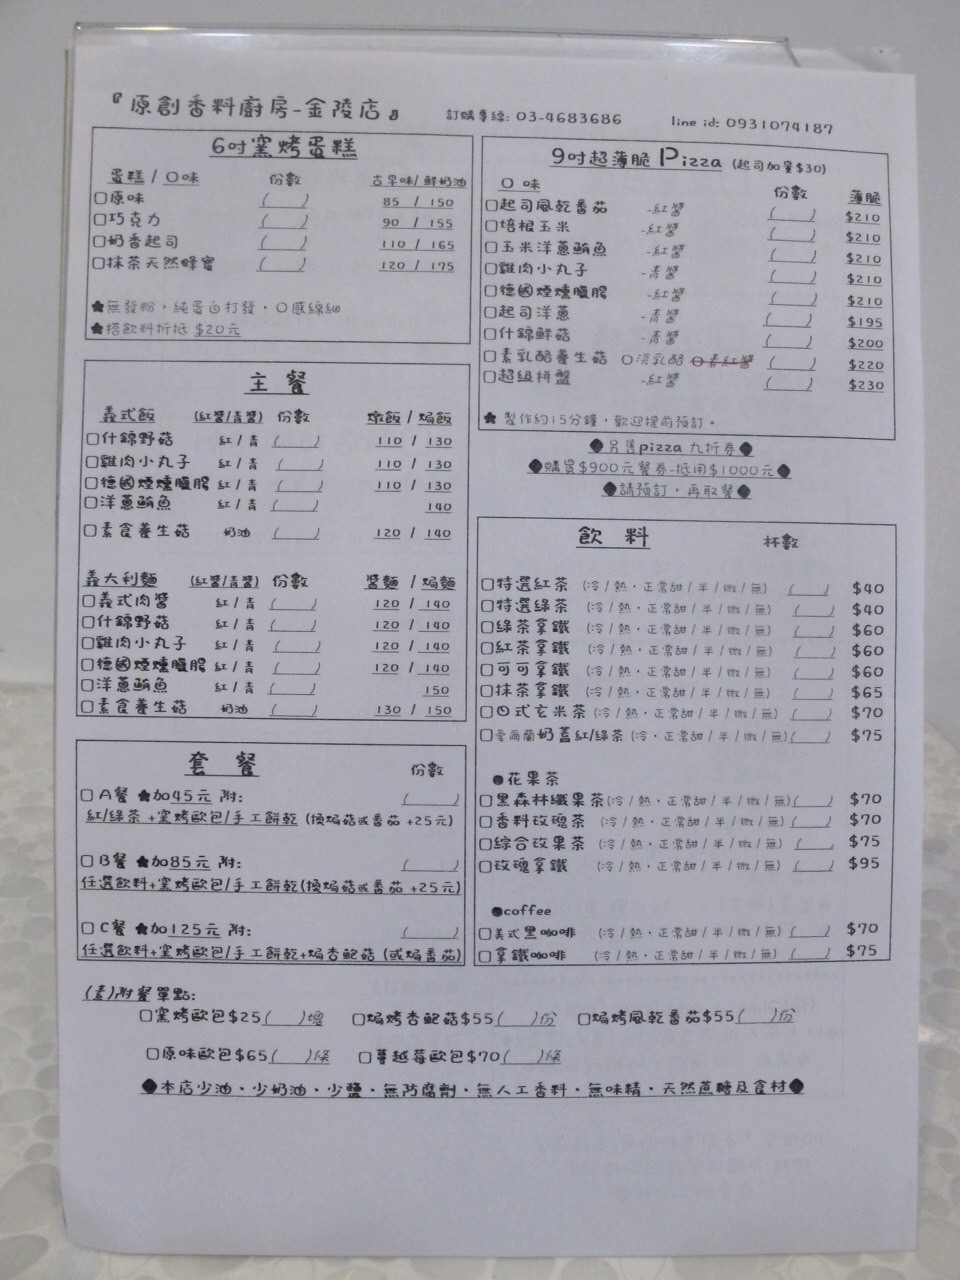 『原創香料廚房-金陵店』 訂購專線: 03-4683686 line id: 0931074187
6吋窯烤蛋糕
蛋糕 / 口味 份數 古早味/鮮奶油
□原味 (  ) 85 / 150
□巧克力 (  ) 90 / 155
□奶香起司 (  ) 110 / 165
□抹茶天然蜂蜜 (  ) 120 / 175
★無發粉，純蛋白打發，口感綿細
★搭飲料折抵 $20元
主 餐
義式飯 (紅醬/青醬) 份數 燉飯 / 焗飯
□什錦野菇 紅 / 青 (  ) 110 / 130
□雞肉小丸子 紅 / 青 (  ) 110 / 130
□德國煙燻臘腸 紅 / 青 (  ) 110 / 130
□洋蔥鮪魚 紅 / 青 (  ) 140
□素食養生菇 奶油 (  ) 120 / 140
義大利麵 (紅醬/青醬) 份數 醬麵 / 焗麵
□義式肉醬 紅 / 青 (  ) 120 / 140
□什錦野菇 紅 / 青 (  ) 120 / 140
□雞肉小丸子 紅 / 青 (  ) 120 / 140
□德國煙燻臘腸 紅 / 青 (  ) 120 / 140
□洋蔥鮪魚 紅 / 青 (  ) 150
□素食養生菇 奶油 (  ) 130 / 150
套 餐 份數
□A餐 ★加45元 附: (  )
紅/綠茶 +窯烤歐包/手工餅乾 (換焗菇或番茄 +25元)
□B餐 ★加85元 附: (  )
任選飲料+窯烤歐包/手工餅乾(換焗菇或番茄 +25元)
□C餐 ★加125元 附: (  )
任選飲料+窯烤歐包/手工餅乾+焗杏鮑菇 (或焗番茄)
9吋超薄脆 Pizza (起司加量$30)
口 味 份數 薄脆
□起司風乾番茄 -紅醬 (  ) $210
□培根玉米 -紅醬 (  ) $210
□玉米洋蔥鮪魚 -紅醬 (  ) $210
□雞肉小丸子 -青醬 (  ) $210
□德國煙燻臘腸 -紅醬 (  ) $210
□起司洋蔥 -青醬 (  ) $195
□什錦鮮菇 -青醬 (  ) $200
□素乳酪養生菇 ○淡乳酪 ○素紅醬 (  ) $220
□超級拼盤 -紅醬 (  ) $230
★ 製作約15分鐘，歡迎提前預訂。
●另售pizza 九折券●
●購買$900元餐券-抵用$1000元●
●請預訂．再取餐●
飲 料 杯數
□特選紅茶 (冷 / 熱．正常甜 / 半 / 微 / 無) (  ) $40
□特選綠茶 (冷 / 熱．正常甜 / 半 / 微 / 無) (  ) $40
□綠茶拿鐵 (冷 / 熱．正常甜 / 半 / 微 / 無) (  ) $60
□紅茶拿鐵 (冷 / 熱．正常甜 / 半 / 微 / 無) (  ) $60
□可可拿鐵 (冷 / 熱．正常甜 / 半 / 微 / 無) (  ) $60
□抹茶拿鐵 (冷 / 熱．正常甜 / 半 / 微 / 無) (  ) $65
□日式玄米茶 (冷 / 熱．正常甜 / 半 / 微 / 無) (  ) $70
□愛爾蘭奶蓋紅/綠茶 (冷．正常甜 / 半 / 微 / 無) (  ) $75
●花果茶
□黑森林纖果茶(冷 / 熱．正常甜 / 半 / 微 / 無) (  ) $70
□香料玫瑰茶 (冷 / 熱．正常甜 / 半 / 微 / 無) (  ) $70
□綜合玫果茶 (冷 / 熱．正常甜 / 半 / 微 / 無) (  ) $75
□玫瑰拿鐵 (冷 / 熱．正常甜 / 半 / 微 / 無) (  ) $95
●coffee
□美式黑咖啡 (冷 / 熱．正常甜 / 半 / 微 / 無) (  ) $70
□拿鐵咖啡 (冷 / 熱．正常甜 / 半 / 微 / 無) (  ) $75
(素)附餐單點:
□窯烤歐包$25(  )塊 □焗烤杏鮑菇$55(  )份 □焗烤風乾番茄$55(  )份
□原味歐包$65(  )條 □蔓越莓歐包$70(  )條
●本店少油．少奶油．少鹽．無防腐劑．無人工香料．無味精．天然蔗糖及食材●